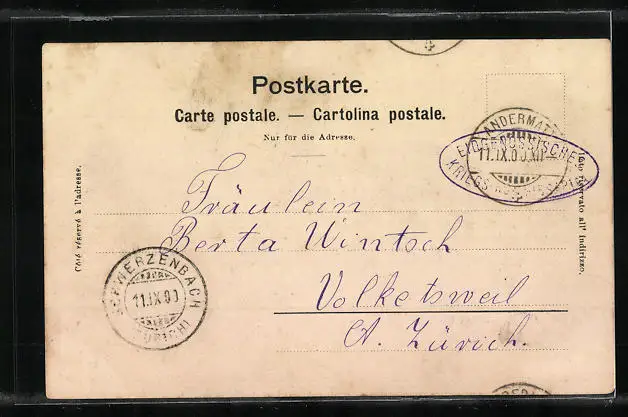 Postkarte.
Carte postale. — Cartolina postale.
Nur für die Adresse.
ANDERMATT
11.IX.00.XII
EIDGENÖSSISCHE
Côté réservé à l'adresse.
Lato riservato all' indirizzo.
Fräulein
Berta Wintsch
Volketsweil
Ct. Zürich.
SCHWERZENBACH
11.IX.00
(ZÜRICH)